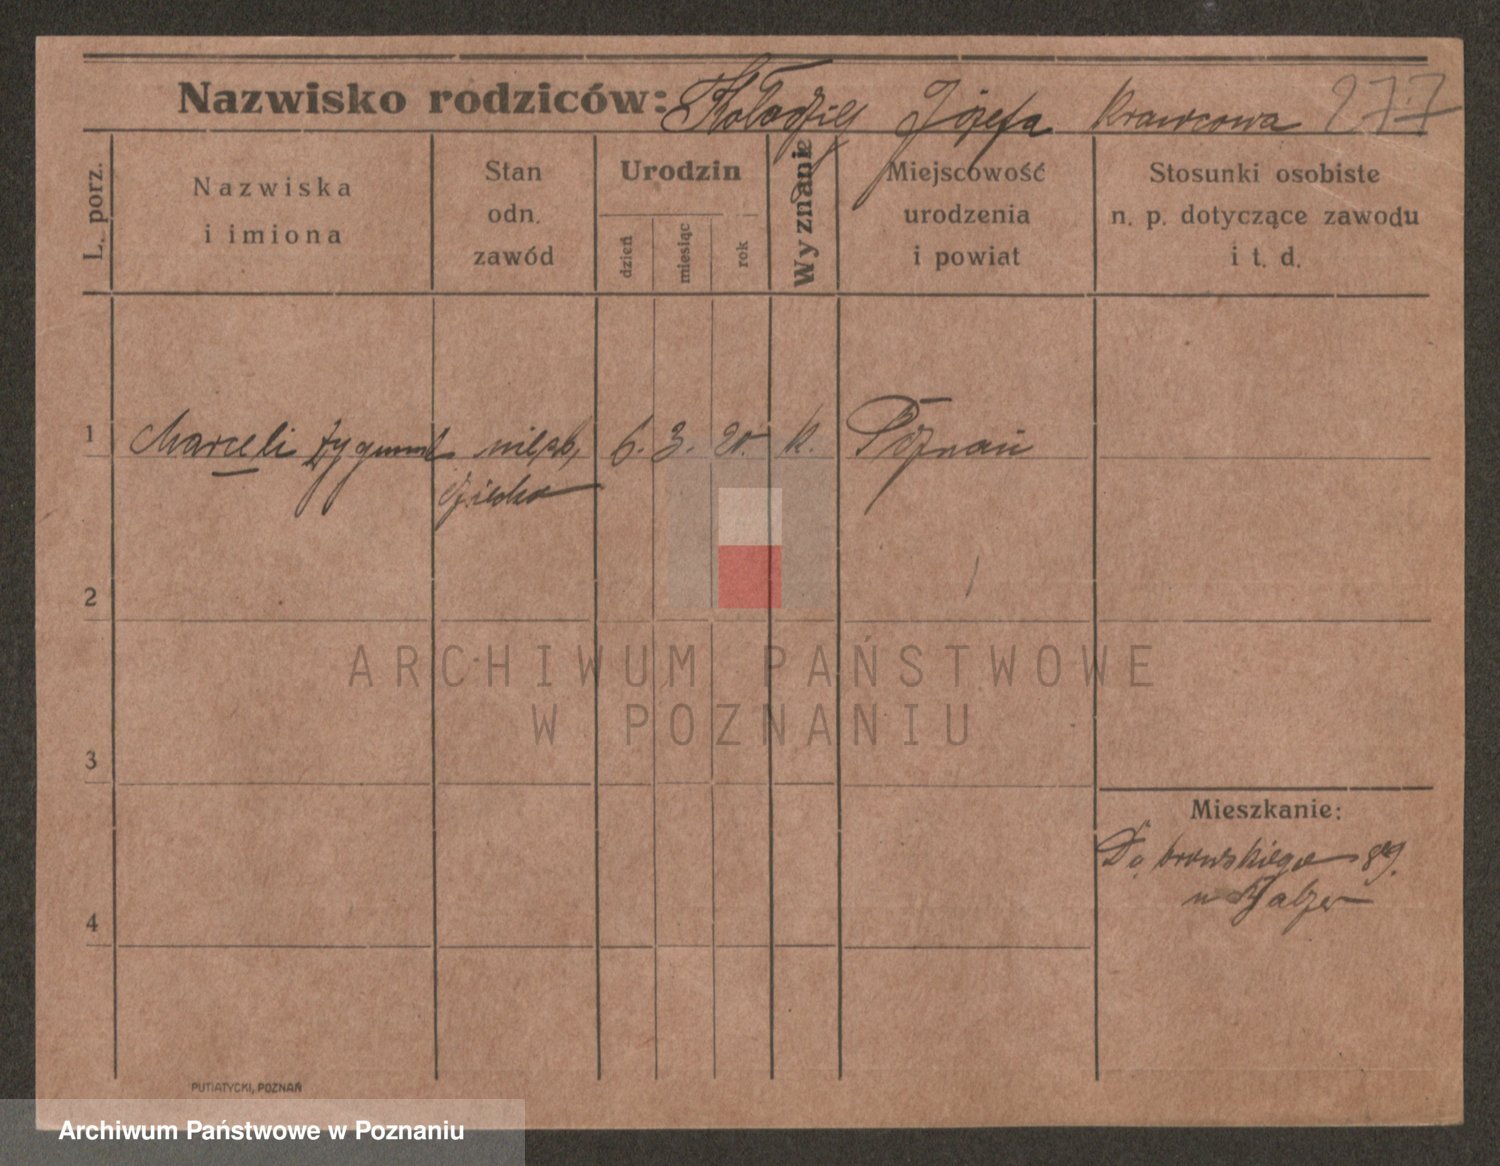 Nazwisko rodziców: Kołodziej Józefa krawcowa 277
L. porz.
Nazwiska
i imiona
Stan
odn.
zawód
Urodzin
dzień
miesiąc
rok
Wyznanie
Miejscowość
urodzenia
i powiat
Stosunki osobiste
n. p. dotyczące zawodu
i t. d.
1 Marceli Zygmunt 6. 3. 20. k. Poznań
2
3
4
Mieszkanie:
Dąbrowskiego 89.
u Balzer
PUTIATYCKI, POZNAŃ
ARCHIWUM PAŃSTWOWE
W POZNANIU
Archiwum Państwowe w Poznaniu